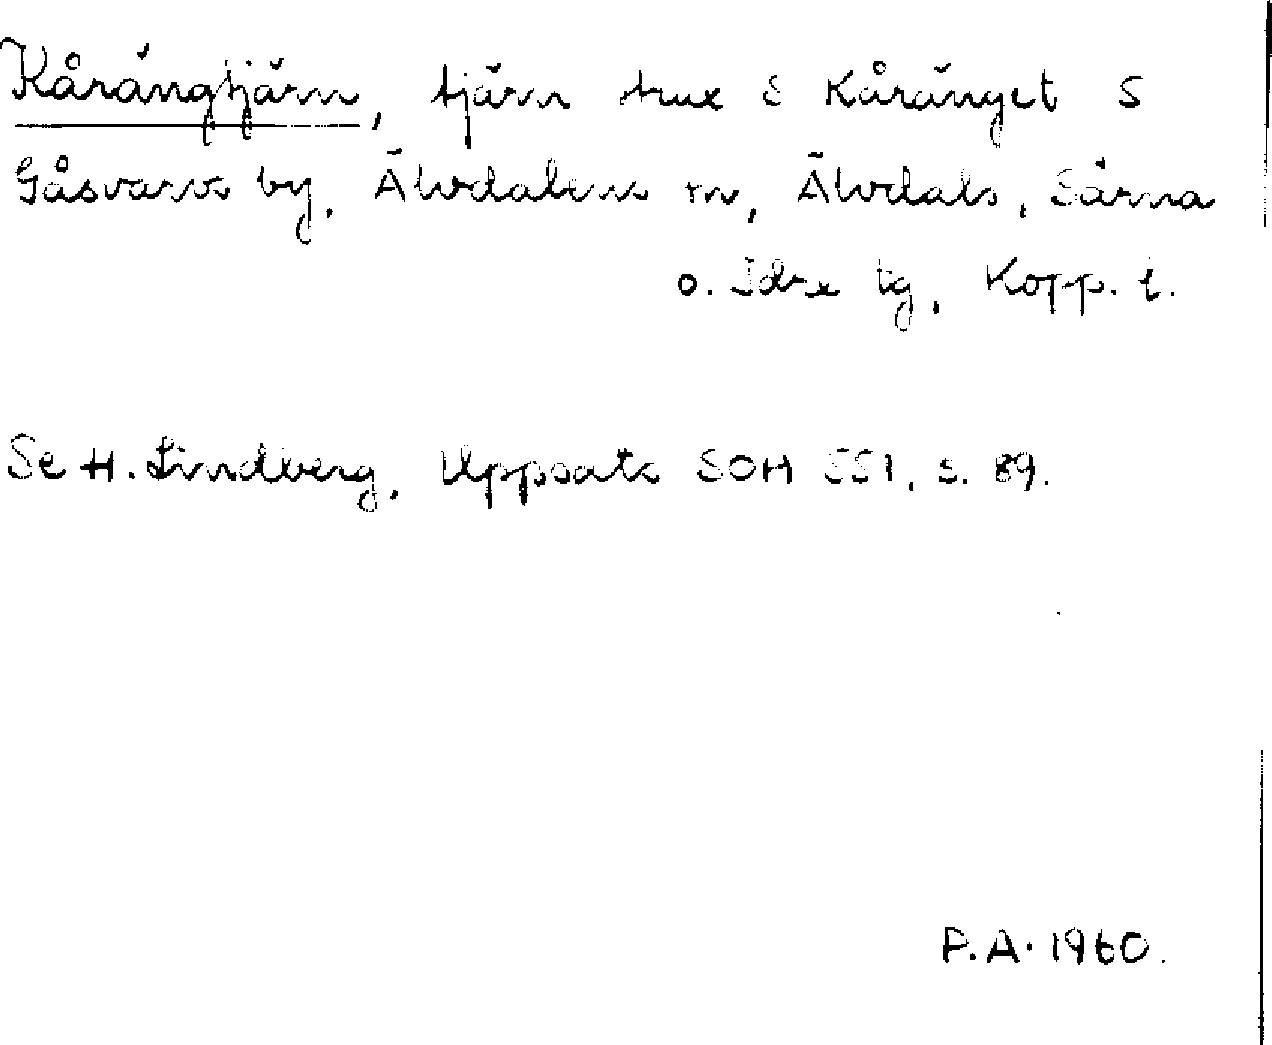 Kårängtjärn, tjärn strax S Kåränget S
Gåsvarvs by, Älvdalens sn, Älvdals, Särna
o. Idre tg, Kopp. l.
Se H. Lindberg, Uppsats SOH 551, s. 89.
P.A. 1960.